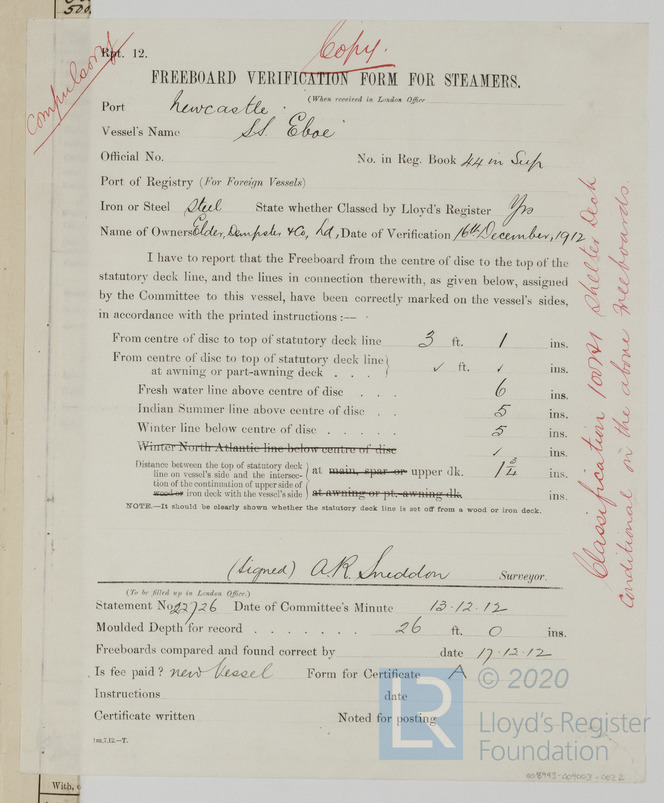 500
compulsory
Rpt. 12.
Copy.
FREEBOARD VERIFICATION FORM FOR STEAMERS.
(When received in London Office
Port Newcastle.
Vessel's Name S.S. Eboe
Official No. No. in Reg. Book 44 in Sup
Port of Registry (For Foreign Vessels)
Iron or Steel Steel State whether Classed by Lloyd's Register Yes
Name of Owners Elder, Dempster & Co, Ld, Date of Verification 16th December, 1912
I have to report that the Freeboard from the centre of disc to the top of the
statutory deck line, and the lines in connection therewith, as given below, assigned
by the Committee to this vessel, have been correctly marked on the vessel's sides,
in accordance with the printed instructions :—
From centre of disc to top of statutory deck line 3 ft. 1 ins.
From centre of disc to top of statutory deck line
at awning or part-awning deck . . . ✓ ft. ✓ ins.
Fresh water line above centre of disc . . . 6 ins.
Indian Summer line above centre of disc . . 5 ins.
Winter line below centre of disc . . . . . 5 ins.
Winter North Atlantic line below centre of disc ✓ ins.
Distance between the top of statutory deck
line on vessel's side and the intersec-
tion of the continuation of upper side of
wood or iron deck with the vessel's side
at main, spar or upper dk. 1 3/4 ins.
at awning or pt.-awning dk. ins.
NOTE.—It should be clearly shown whether the statutory deck line is set off from a wood or iron deck.
Classification 100A1 Shelter Deck
conditional on the above freeboards.
(Signed) A.R. Sneddon Surveyor.
(To be filled up in London Office.)
Statement No. 22726 Date of Committee's Minute 13.12.12
Moulded Depth for record . . . . . . . 26 ft. 0 ins.
Freeboards compared and found correct by date 17.12.12
Is fee paid? new Vessel Form for Certificate A
Instructions date
Certificate written Noted for posting
1m,7,12.—T.
LR
© 2020
Lloyd's Register
Foundation
008993-009003-0022
With,